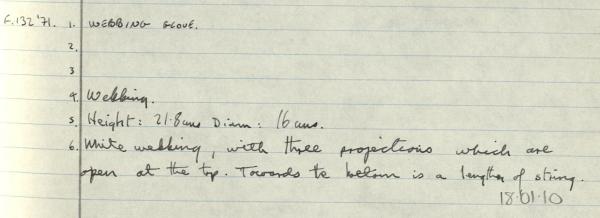 E.132'71. 1. WEBBING GLOVE.
2.
3
4. Webbing.
5. Height: 21.8cms Diam: 16 cms.
6. White webbing, with three projections which are
open at the top. Towards te bottom is a length of string.
18.01.10